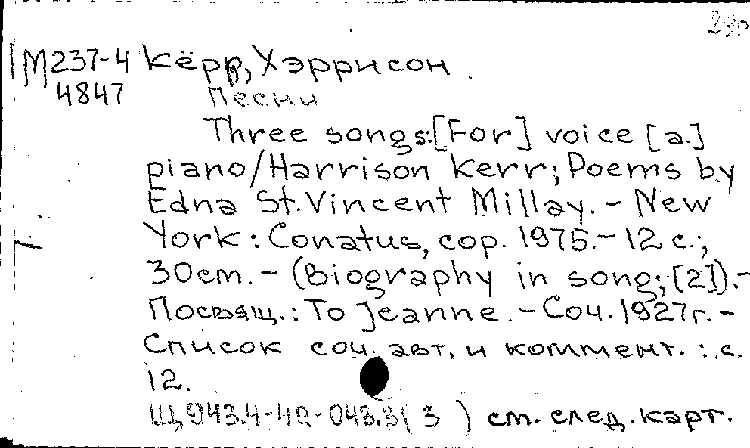 М237-4 Кёрр, Хэррисон.
4847 Песни
Three songs:[For] voice [a.]
piano/Harrison Kerr; Poems by
Edna St. Vincent Millay. - New
York: Conatus, cop. 1975. - 12 с.;
30cm. - (Biography in song; [2]). -
Посвящ.: To Jeanne. - Соч. 1927г. -
Список соч. авт. и коммент.: с.
12.
Щ943.4-4 см. след. карт.